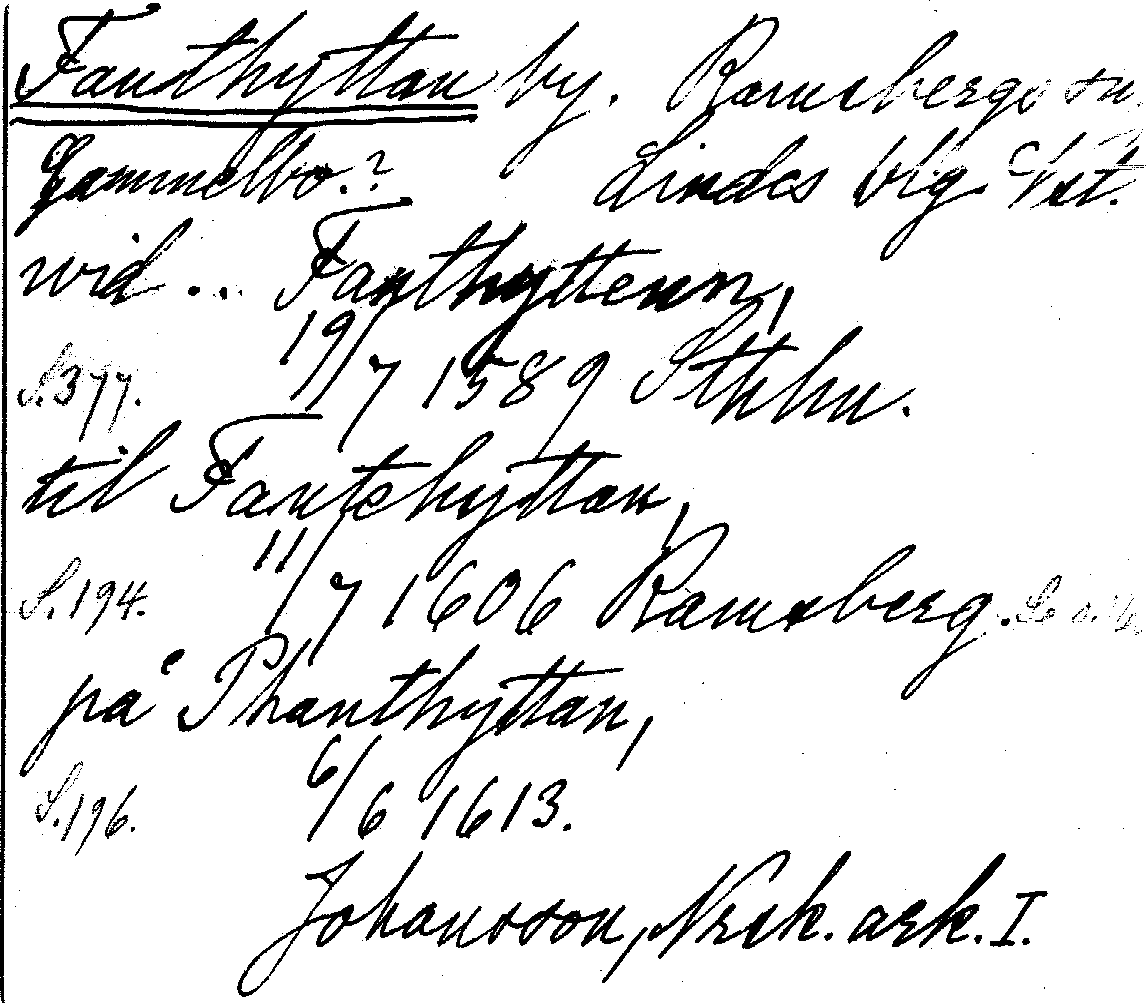 Fanthyttan by. Ramsbergs sn.
Gammelbo? Lindes blg Vst.
wid... Fanthyttenn,
S.377. 19/7 1589 Sthlm.
til Fantehyttan,
S.194. 11/7 1606 Ramsberg.
på Phanthyttan,
S.196. 6/6 1613.
Johansson, Nrsk. ark. I.